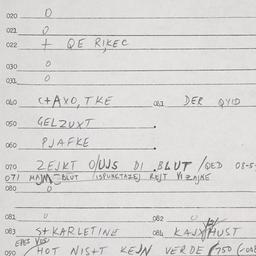 020 0
021 0
022 + QE RIKEC
030 0
031 0
040 C+AXO, TKE 041 DER QYID
050 GELZUXT
060 PJAFKE
070 ZEJKT O/UJS DI BLUT /QED 08-5
071 MAJN BLUT /ISPUNCTAZEJ REJT VIZAJNE
080 0
081 0 082 0
083 S+KARLETINE 084 KAJX HUST
090 HOT NIS+T KEJN VERDE 750